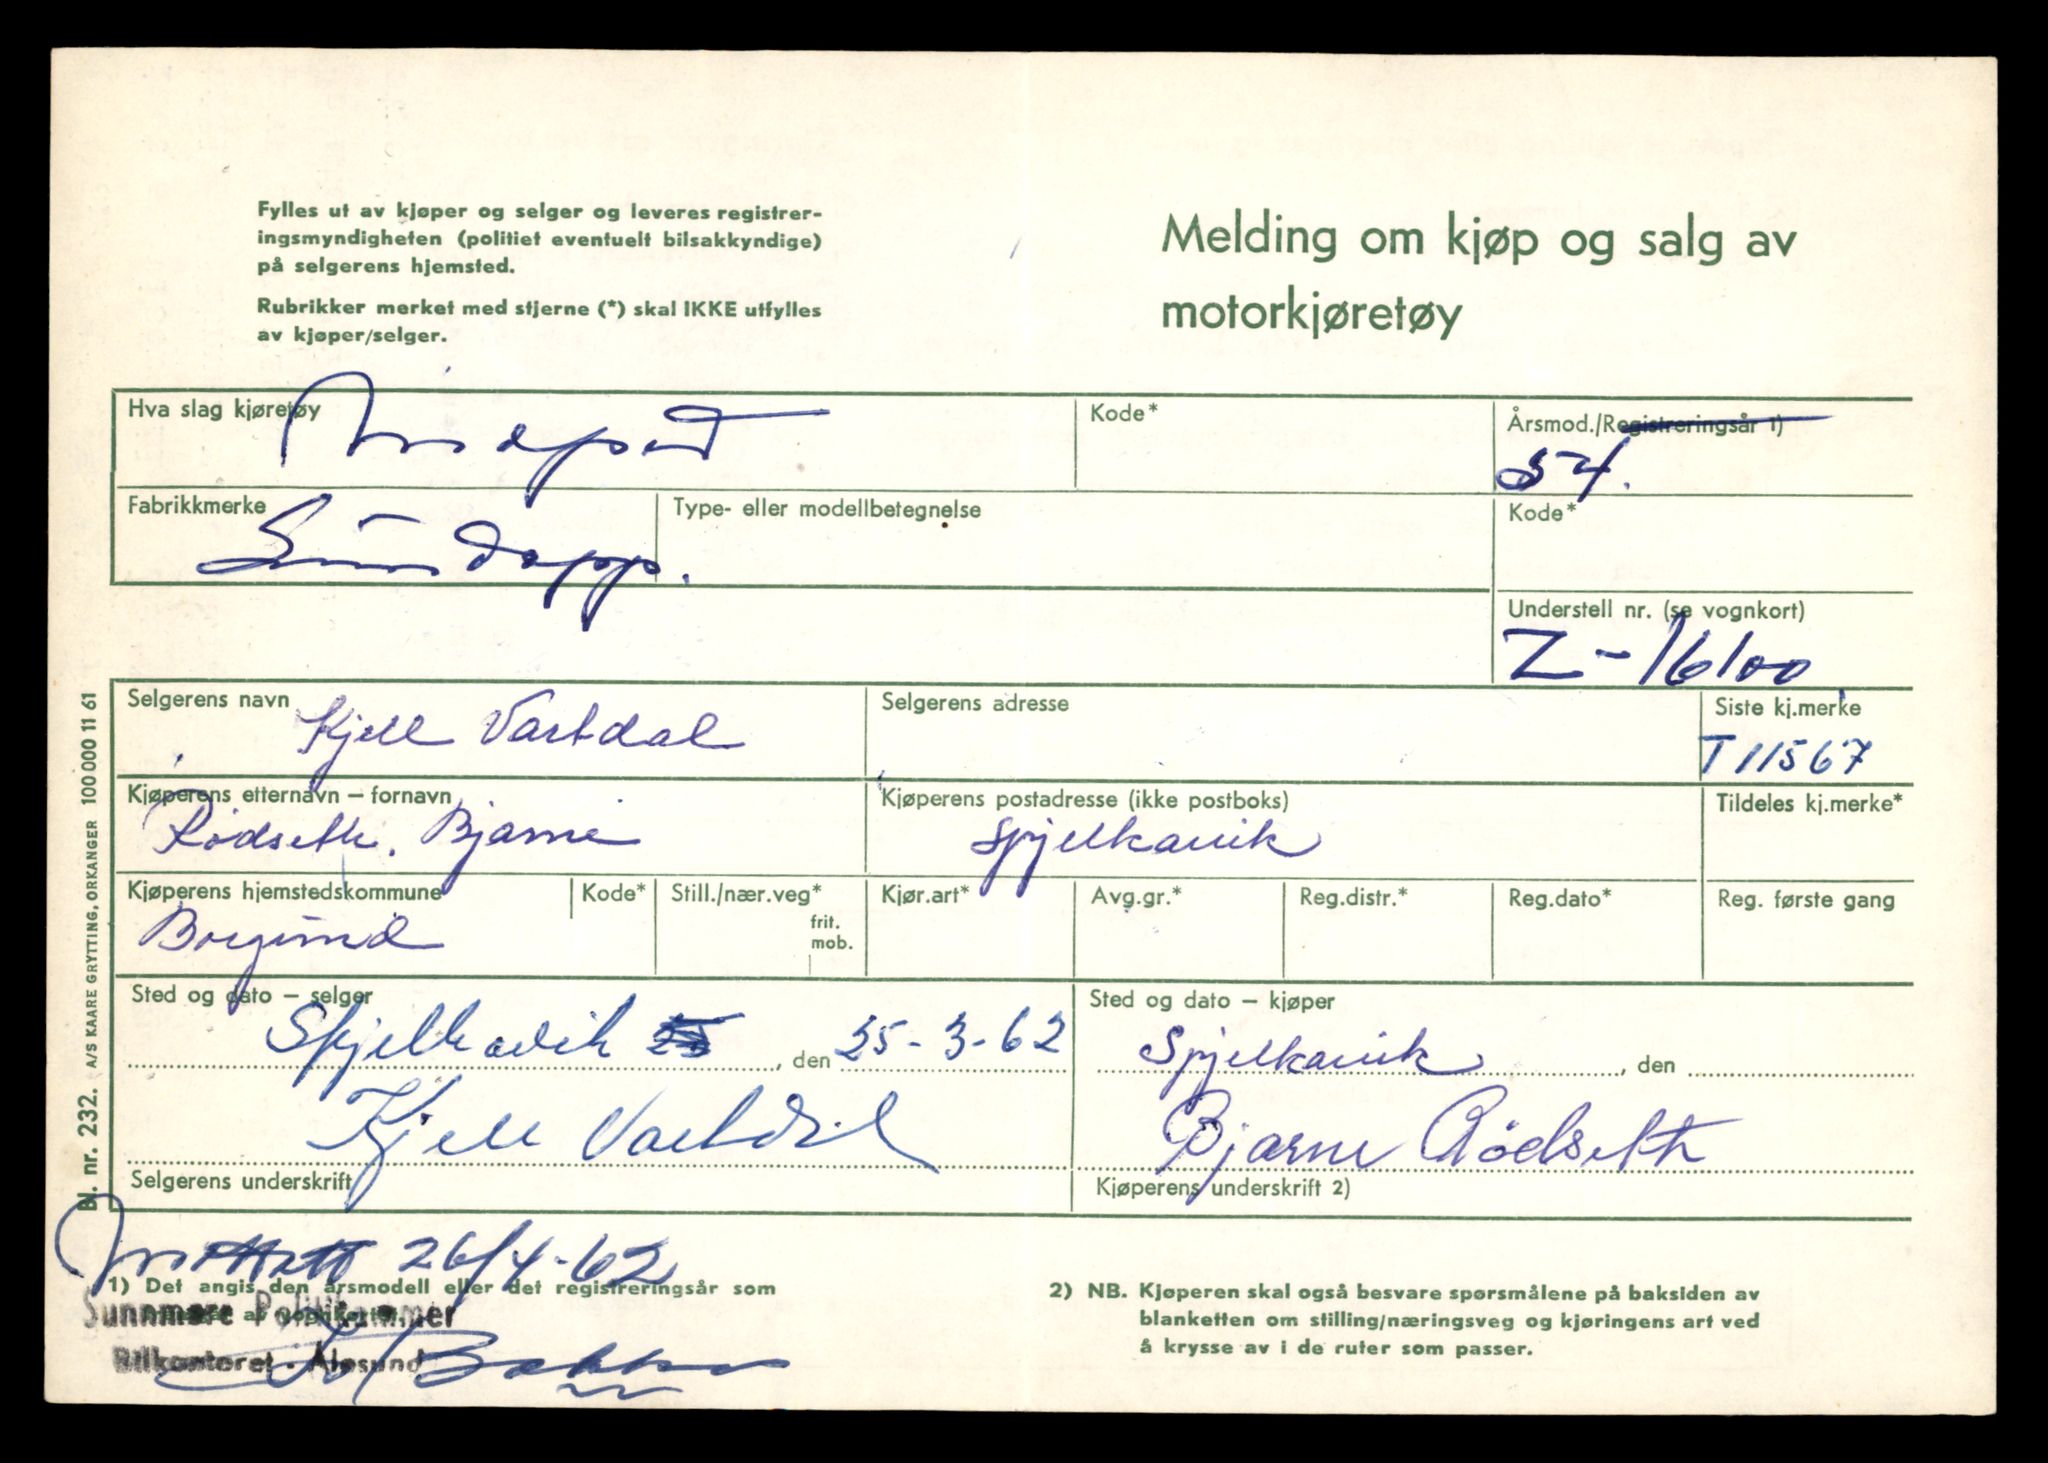 Fylles ut av kjøper og selger og leveres registrer-
ingsmyndigheten (politiet eventuelt bilsakkyndige)
på selgerens hjemsted.
Rubrikker merket med stjerne (*) skal IKKE utfylles
av kjøper/selger.
Melding om kjøp og salg av
motorkjøretøy
Hva slag kjøretøy
Moped
Kode*
Årsmod./Registreringsår 1)
54.
Fabrikkmerke
Zündapp.
Type- eller modellbetegnelse
Kode*
Understell nr. (se vognkort)
Z-16100
Selgerens navn
Kjell Vartdal
Selgerens adresse
Siste kj.merke
T 11567
Kjøperens etternavn – fornavn
Rødseth, Bjarne
Kjøperens postadresse (ikke postboks)
Spjelkavik
Tildeles kj.merke*
Kjøperens hjemstedskommune
Borgund
Kode*
Still./nær.veg*
frit.
mob.
Kjør.art*
Avg.gr.*
Reg.distr.*
Reg.dato*
Reg. første gang
Sted og dato – selger
Spjelkavik 25, den 25-3-62
Kjell Vartdal
Selgerens underskrift
Sted og dato – kjøper
Spjelkavik, den
Bjarne Rødseth
Kjøperens underskrift 2)
Bl. nr. 232. A/S KAARE GRYTTING, ORKANGER 100 000 11 61
Mottatt 26/4-62
1) Det angis den årsmodell eller det registreringsår som
av
Sunnmøre Politikammer
Bilkontoret - Ålesund
Bakken
2) NB. Kjøperen skal også besvare spørsmålene på baksiden av
blanketten om stilling/næringsveg og kjøringens art ved
å krysse av i de ruter som passer.